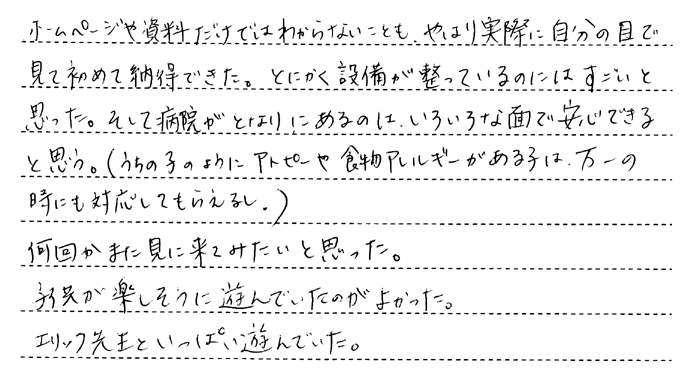 ホームページや資料だけではわからないことも、やはり実際に自分の目で
見て初めて納得できた。とにかく設備が整っているのにはすごいと
思った。そして病院がとなりにあるのは、いろいろな面で安心できる
と思う。(うちの子のようにアトピーや食物アレルギーがある子は、万一の
時にも対応してもらえるし、)
何回かまた見に来てみたいと思った。
子供が楽しそうに遊んでいたのがよかった。
エリック先生といっぱい遊んでいた。